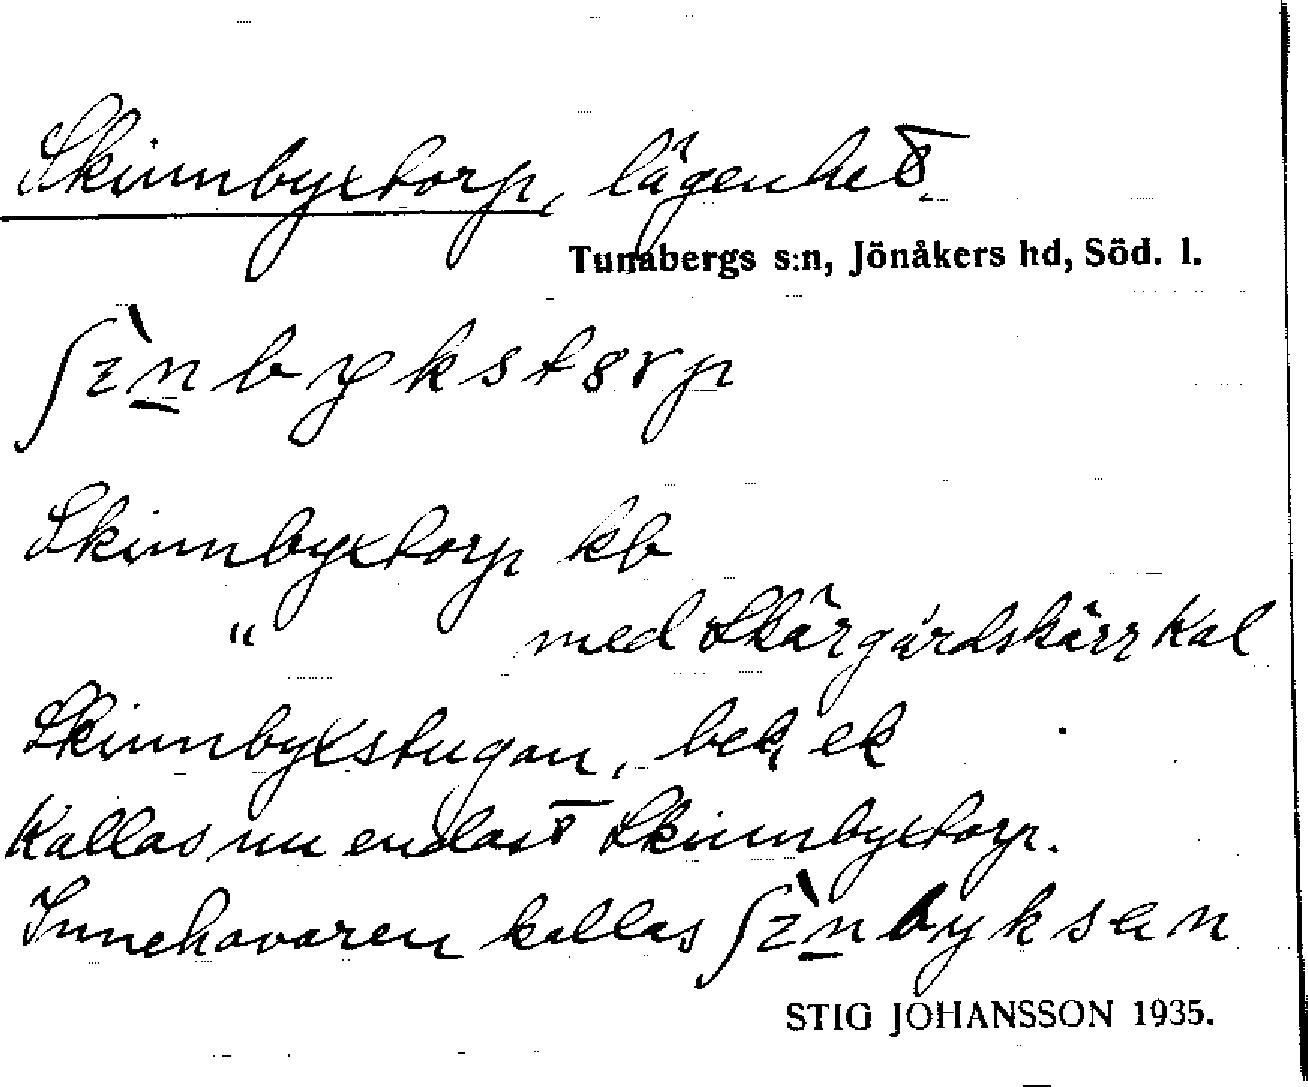 Skinnbyxtorp, lägenhet.
Tunabergs s:n, Jönåkers hd, Söd. l.
ʃɪ̀n̲bykstɞrp
Skinnbyxtorp kb
" med Skärgårdskärr Kal
Skinnbyxstugan, bek, ek
Kallas nu endast Skinnbyxtorp.
Innehavaren kallas ʃɪ̀n̲byksen
STIG JOHANSSON 1935.